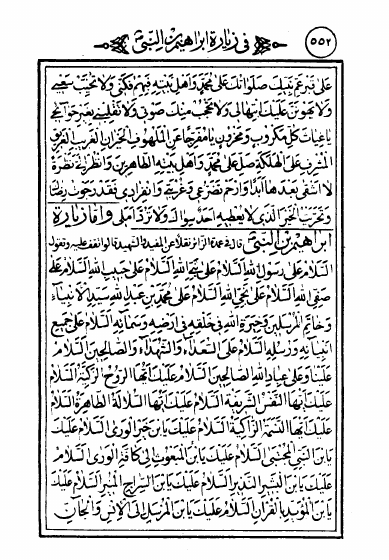 في زيارة ابراهيم بن النبي ٥٥٢
على قبر عم نبيك صلواتك على محمد واهل بيته فبهم فكني ولا تخيب سعيي
ولا يهونن عليك ابتهالي ولا تحجب منك صوتي ولا تقلبني بغير حوائجي
يا غياث كل مكروب ومحزون يا مفرجا عن الملهوف الحيران الغريب الغريق
المشرف على الهلكة صل على محمد واهل بيته الطاهرين وانظر الي نظرة
لا اشقى بعدها ابدا وارحم تضرعي وغربتي وانفرادي فقد رجوت رضاك
وتحريت الخير الذي لا يعطيه احد سواك ولا ترد املي واما زيارة
ابراهيم بن النبي قال في عمدة الزائر نقلا عن المفيد والشهيد الوقوف عليه وتقول
السلام على رسول الله السلام على نبي الله السلام على حبيب الله السلام على
صفي الله السلام على نجي الله السلام على محمد بن عبد الله سيد الانبياء
وخاتم المرسلين وخيرة الله في خلقه في ارضه وسمائه السلام على جميع
انبيائه ورسله السلام على السعداء والشهداء والصالحين السلام
علينا وعلى عباد الله الصالحين السلام عليك ايتها الروح الزكية السلام
عليك ايتها النفس الشريفة السلام عليك ايتها السلالة الطاهرة السلام
عليك ايتها النسمة الزاكية السلام عليك يا بن خير الورى السلام عليك
يا بن النبي المجتبى السلام عليك يا بن المبعوث الى كافة الورى السلام
عليك يا بن البشير النذير السلام عليك يا بن السراج المنير السلام عليك
يا بن المؤيد بالقران السلام عليك يا بن المرسل الى الانس والجان